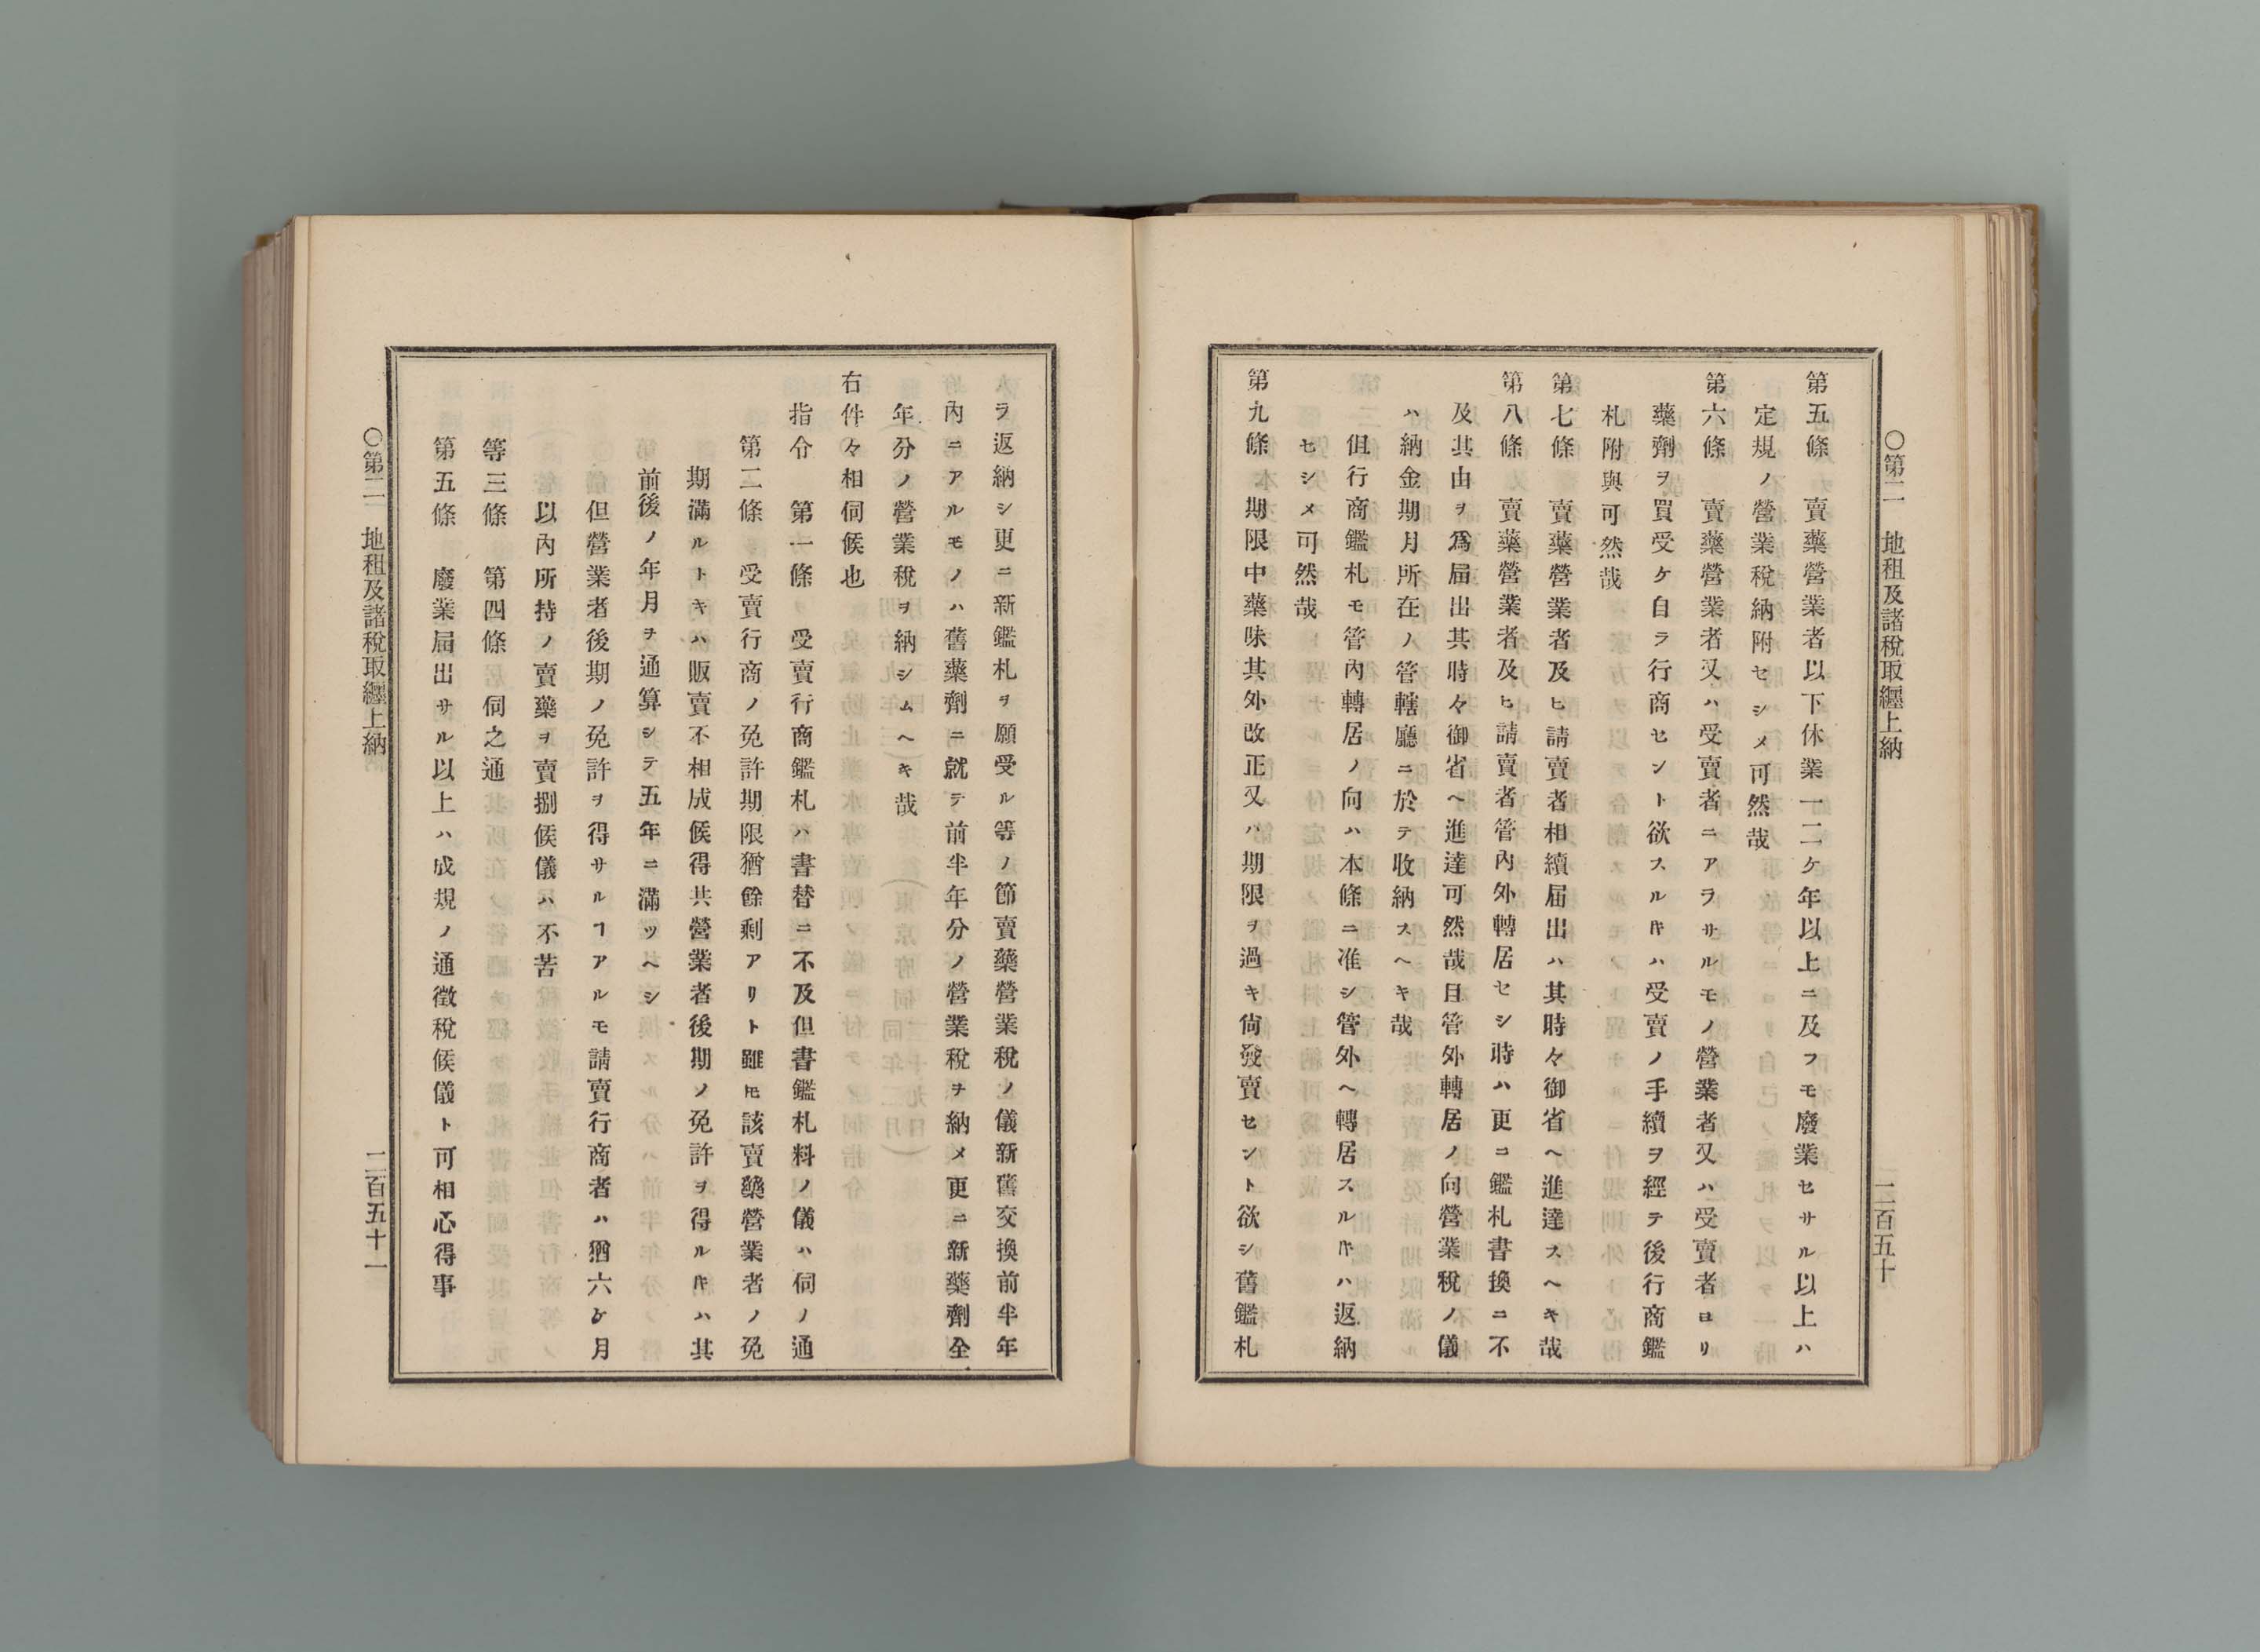 〇第二　地租及諸稅取纒上納
二百五十
第五條　賣藥營業者以下休業一二ケ年以上ニ及フモ廢業セサル以上ハ
定規ノ營業稅納附セシメ可然哉
第六條　賣藥營業者又ハ受賣者ニアラサルモノ營業者又ハ受賣者ヨリ
藥劑ヲ買受ケ自ラ行商セント欲スルキハ受賣ノ手續ヲ經テ後行商鑑
札附與可然哉
第七條　賣藥營業者及ヒ請賣者相續屆出ハ其時々御省ヘ進達スヘキ哉
第八條　賣藥營業者及ヒ請賣者管內外轉居セシ時ハ更ニ鑑札書換ニ不
及其由ヲ爲屆出其時々御省ヘ進達可然哉且管外轉居ノ向營業稅ノ儀
ハ納金期月所在ノ管轄廳ニ於テ收納スヘキ哉
但行商鑑札モ管內轉居ノ向ハ本條ニ准シ管外ヘ轉居スルキハ返納
セシメ可然哉
第九條　期限中藥味其外改正又ハ期限ヲ過キ尙發賣セント欲シ舊鑑札
ハヲ返納シ更ニ新鑑札ヲ願受ル等ノ節賣藥營業稅ノ儀新舊交換前半年
內ニアルモノハ舊藥劑ニ就テ前半年分ノ營業稅ヲ納メ更ニ新藥劑全
年分ノ營業稅ヲ納シムヘキ哉
右件々相伺候也
指令　第一條　受賣行商鑑札ハ書替ニ不及但書鑑札料ノ儀ハ伺ノ通
第二條　受賣行商ノ免許期限猶餘剩アリト雖モ該賣藥營業者ノ免
期滿ルトキハ販賣不相成候得共營業者後期ノ免許ヲ得ルキハ其
前後ノ年月ヲ通算シテ五年ニ滿ツヘシ
但營業者後期ノ免許ヲ得サルヿアルモ請賣行商者ハ猶六ケ月
以內所持ノ賣藥ヲ賣捌候儀ハ不苦
等三條　第四條　伺之通
第五條　廢業屆出サル以上ハ成規ノ通徵稅候儀ト可相心得事
〇第二　地租及諸稅取纒上納
二百五十一